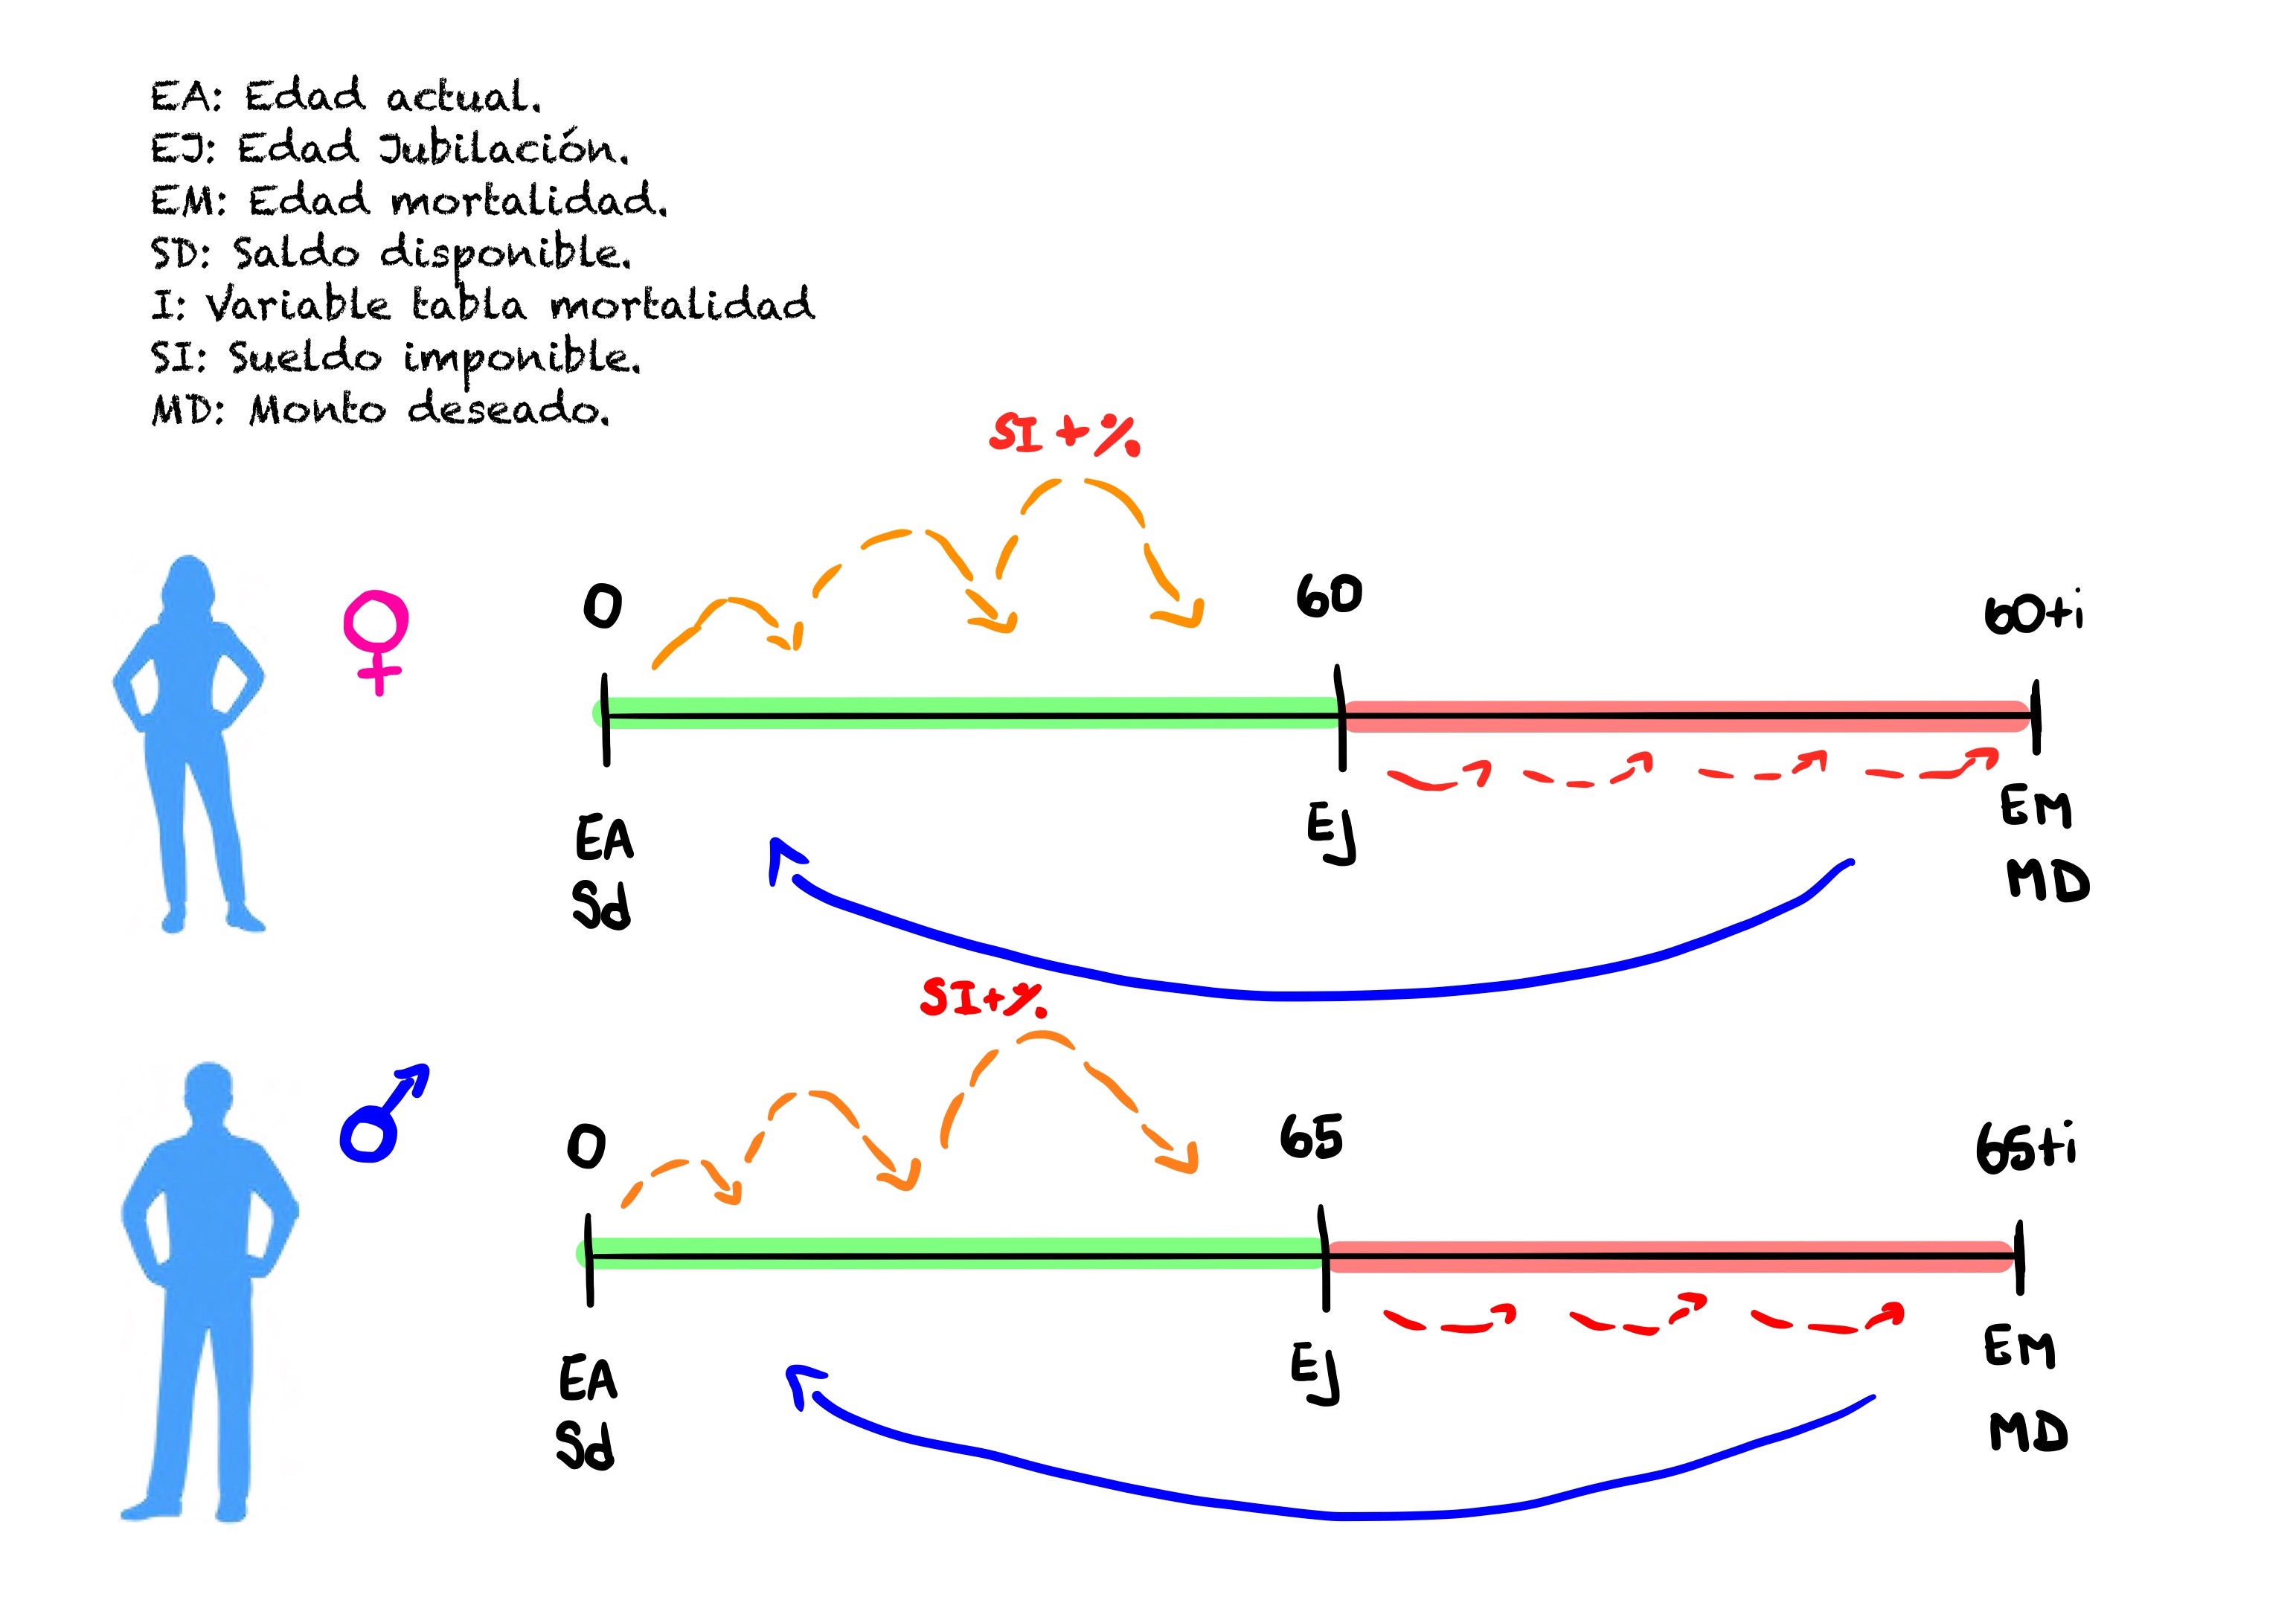 EA: Edad actual.
EJ: Edad Jubilación.
EM: Edad mortalidad.
SD: Saldo disponible.
I: Variable tabla mortalidad
SI: Sueldo imponible.
MD: Monto deseado.
SI + %
0
60
60+i
EA
EJ
EM
Sd
MD
SI+%
0
65
65+i
EA
EJ
EM
Sd
MD